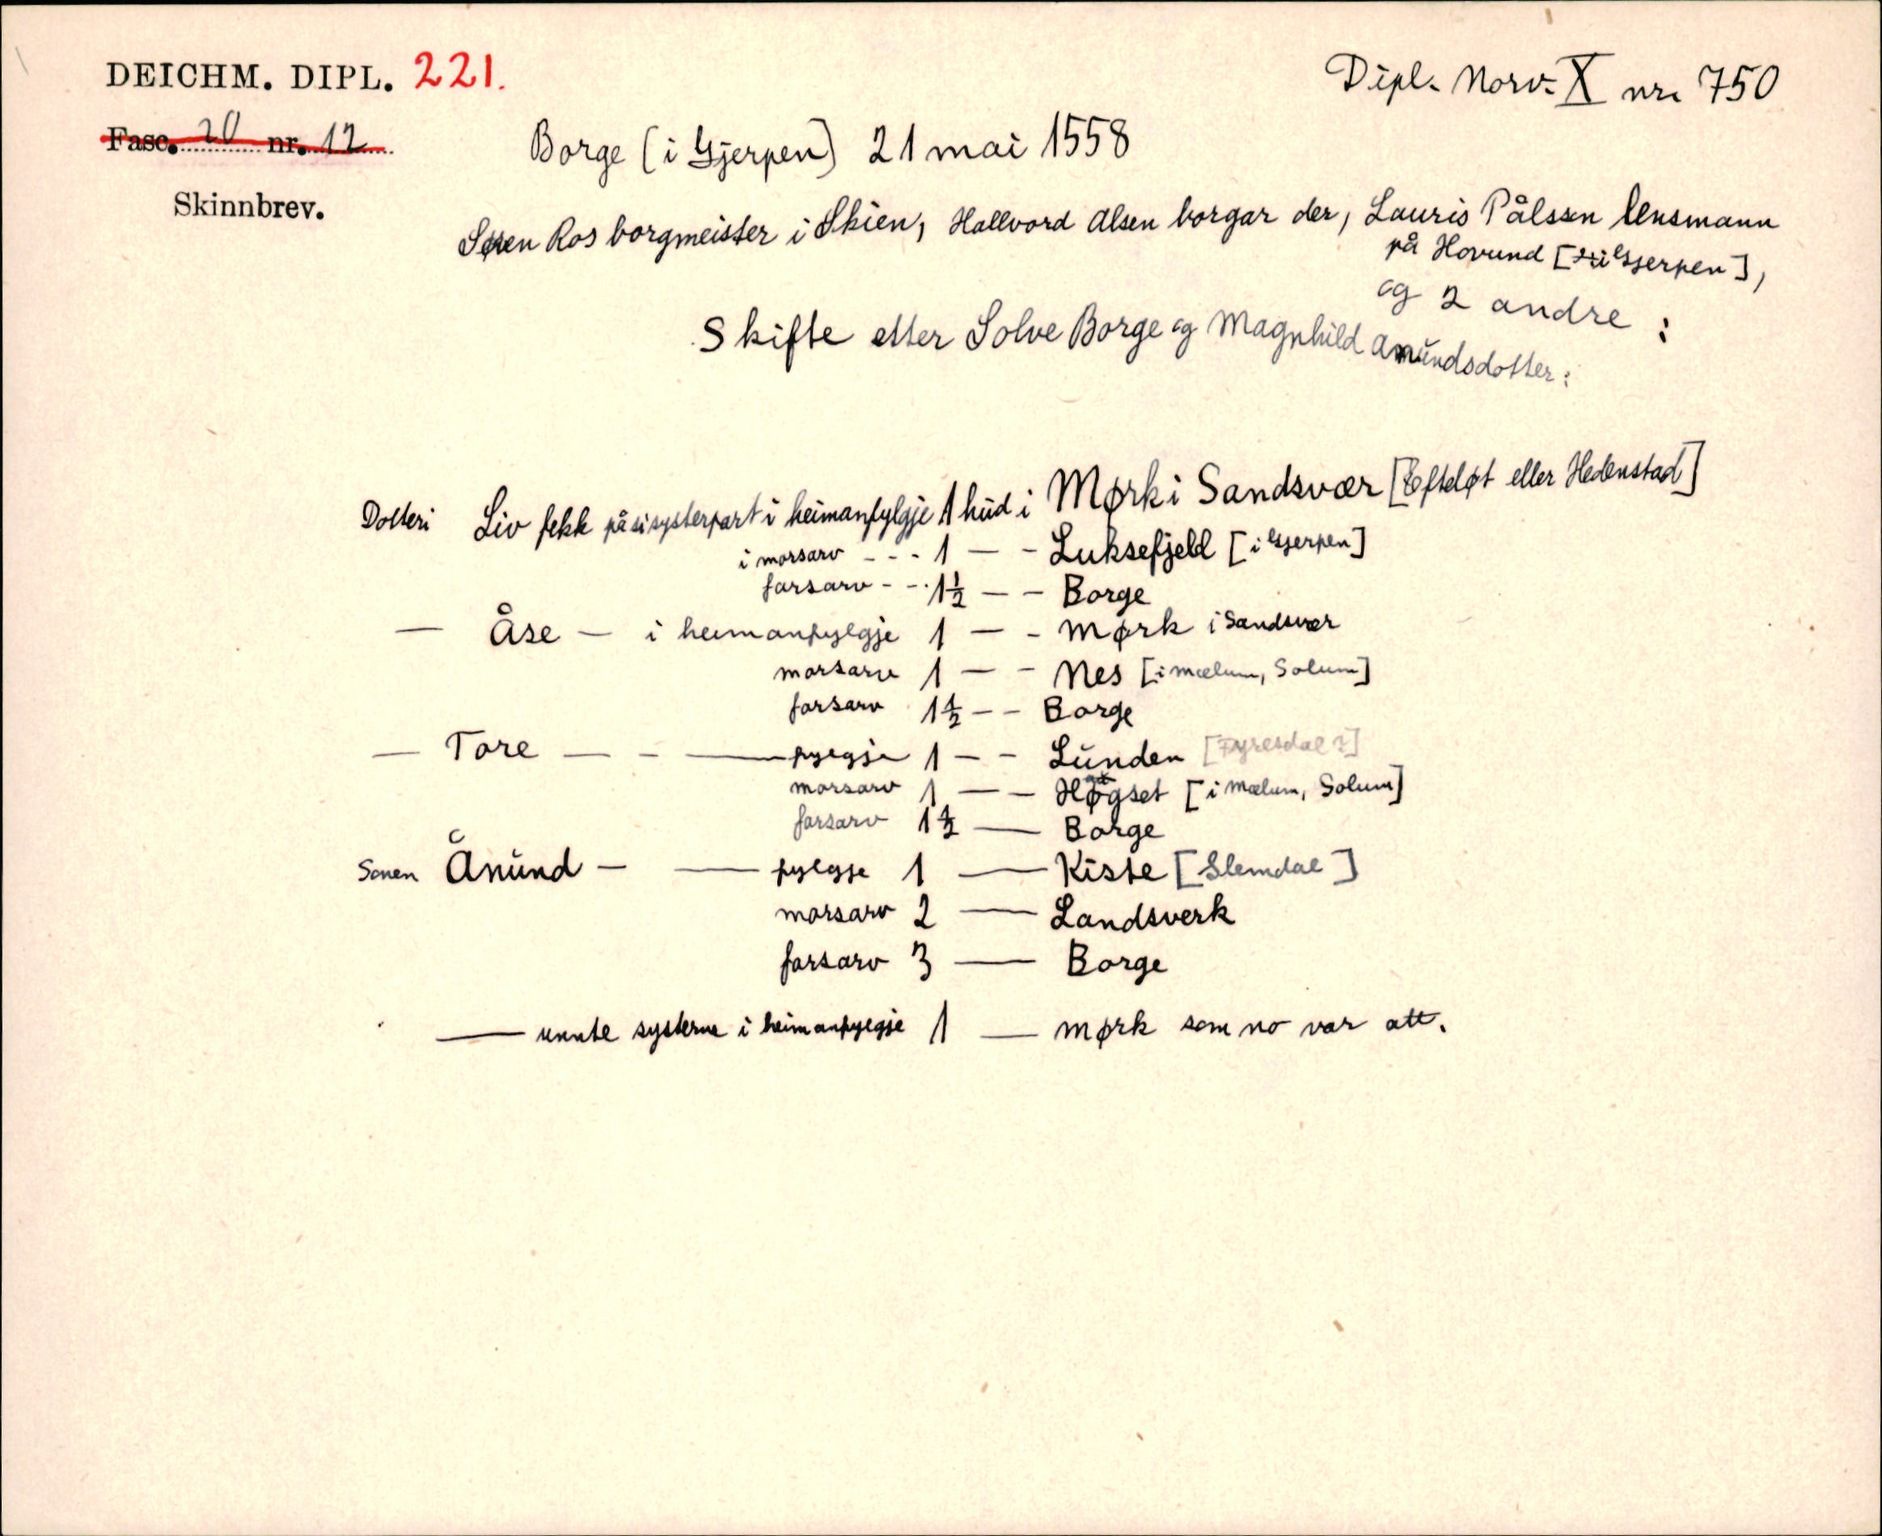 DEICHM. DIPL. 221.
Dipl. Norv. X nr. 750
Fasc. 20 nr. 12
Borge (i Gjerpen) 21 mai 1558
Skinnbrev.
Søren Ros borgmeister i Skien, Hallvord Alsen borgar der, Lauris Pålssøn lensmann
på Hovund [i Gjerpen],
og 2 andre :
Skifte etter Solve Borge og Magnhild Amundsdotter:
Dotteri Liv fekk på si systerpart i heimanfylgje 1 hud i Mørk i Sandsvær [Efteløt eller Hedenstad]
i morsarv - - - 1 — - Luksefjeld [i Gjerpen]
farsarv - - . 1½ — - Borge
— Åse — i heimanfylgje 1 — - Mørk i Sandsvær
morsarv 1 — - Nes [i Mælum, Solum]
farsarv 1½ — - Borge
— Tore — - — fylgje 1 — - Lunden [Fyresdal?]
morsarv 1 — - Høgset [i Mælum, Solum]
farsarv 1½ — Borge
Sonen Ånund — — fylgje 1 — Kiste [Slemdal]
morsarv 2 — Landsverk
farsarv 3 — Borge
— unnte systerne i heimanfylgje 1 — Mørk som no var att.